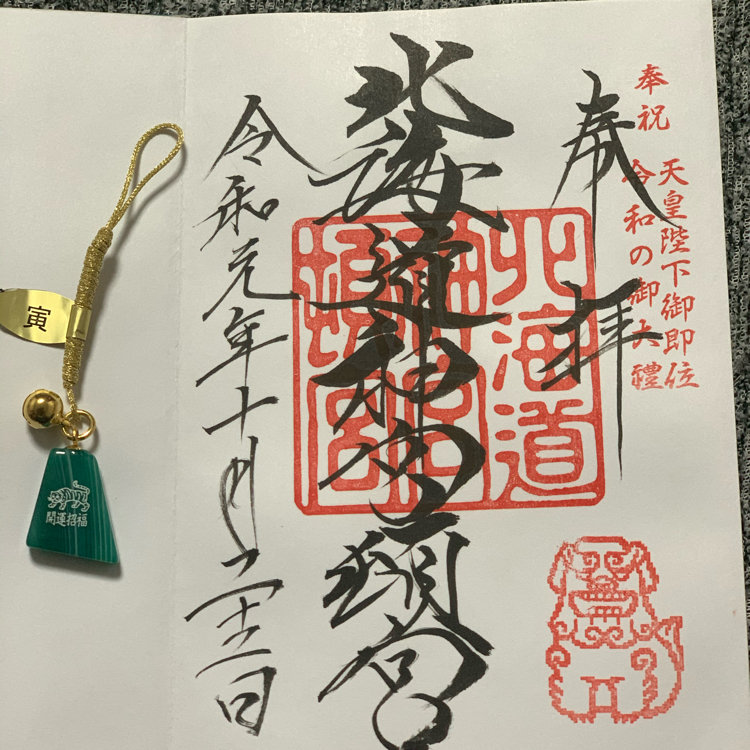 奉祝
天皇陛下御即位
令和の御大禮
奉拝
北海道神宮頓宮
北海道
神宮
頓宮
令和元年十月二十二日
寅
開運招福